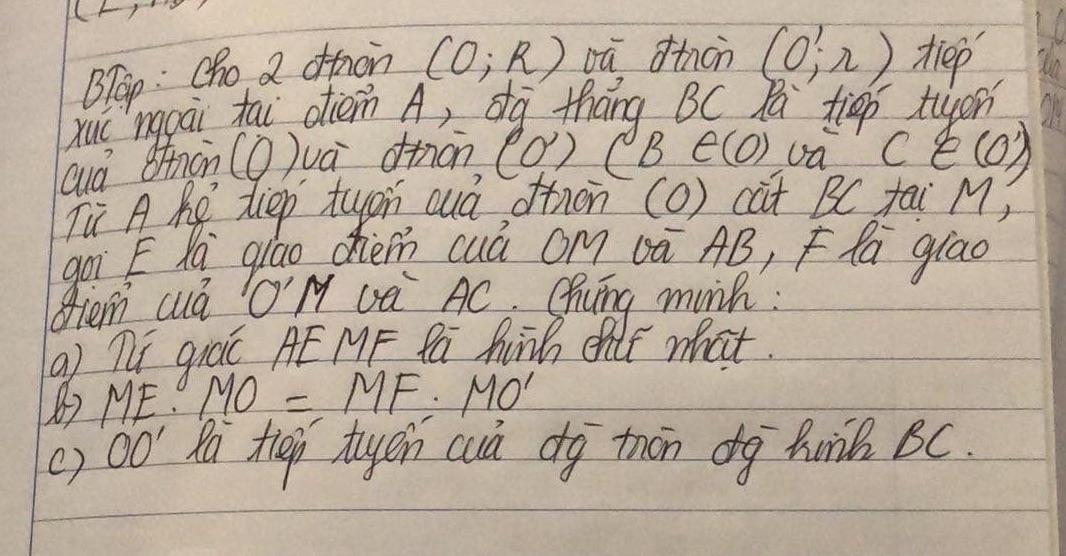 BTập: Cho 2 đtròn (O; R) và đtròn (O'; r) tiếp
xúc ngoài tại điểm A, đg thẳng BC là tiếp tuyến
của đtròn (O) và đtròn (O') (B ∈ (O) và C ∈ (O'))
Từ A kẻ tiếp tuyến của đtròn (O) cắt BC tại M,
gọi E là giao điểm của OM và AB, F là giao
điểm của O'M và AC. Chứng minh:
a) Tứ giác AEMF là hình chữ nhật.
b) ME. MO = MF. MO'
c) OO' là tiếp tuyến của đg tròn đg kính BC.